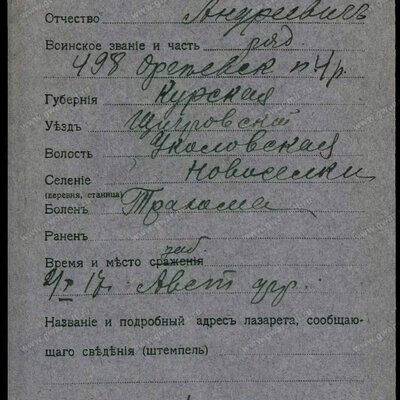 Отчество Андреевичъ
Воинское званіе и часть ряд.
498 Оргѣевск п 4 р.
Губернія Курская
Уѣздъ Щигровскій
Волость Уколовская
Селеніе Новоселки
(деревня, станица)
Боленъ Трахома
Раненъ
заб.
Время и мѣсто сраженія
17 г. Австр
Названіе и подробный адресъ лазарета, сообщаю-
щаго свѣдѣнія (штемпель)